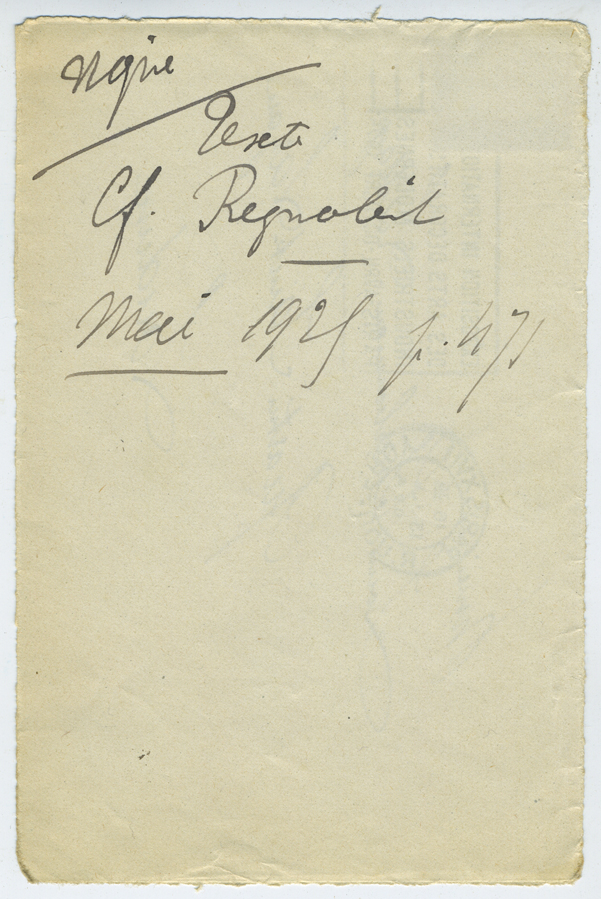 Texte
Cf. Regnault
Mai 1925 p. 471